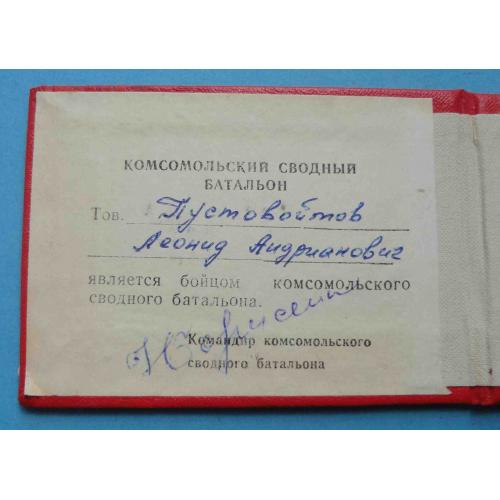 КОМСОМОЛЬСКИЙ СВОДНЫЙ
БАТАЛЬОН
Тов. Пустовойтов
Леонид Андрианович
является бойцом комсомольского
сводного батальона.
Командир комсомольского
сводного батальона